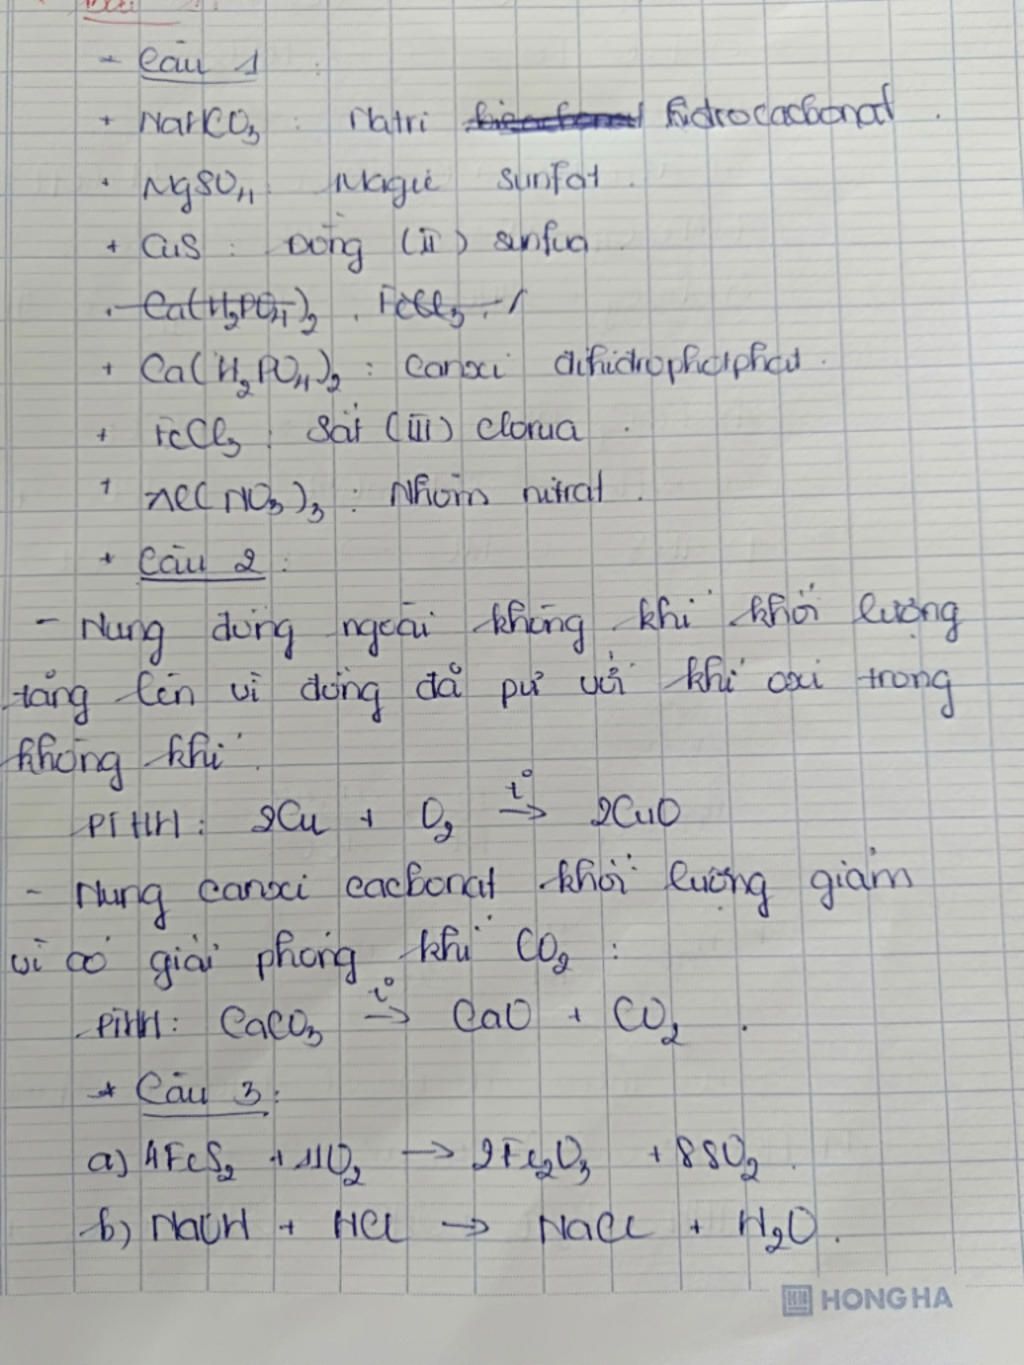 - Câu 1 :
+ NaHCO3 : Natri hidrocacbonat .
+ MgSO4 : Magie sunfat .
+ CuS : Đồng (II) sunfua .
. Ca(H2PO4)2 . FeCl3 .
+ Ca(H2PO4)2 : Canxi đihidrophotphat .
+ FeCl3 : Sắt (III) clorua .
+ Al(NO3)3 : Nhôm nitrat .
+ Câu 2 :
- Nung đồng ngoài không khí khối lượng
tăng lên vì đồng đã pứ với khí oxi trong
không khí .
PTHH : 2Cu + O2 t° → 2CuO
- Nung canxi cacbonat khối lượng giảm
vì có giải phóng khí CO2 :
PTHH : CaCO3 t° → CaO + CO2 .
+ Câu 3 :
a) 4FeS2 + 11O2 → 2Fe2O3 + 8SO2 .
b) NaOH + HCl → NaCl + H2O .
HONG HA